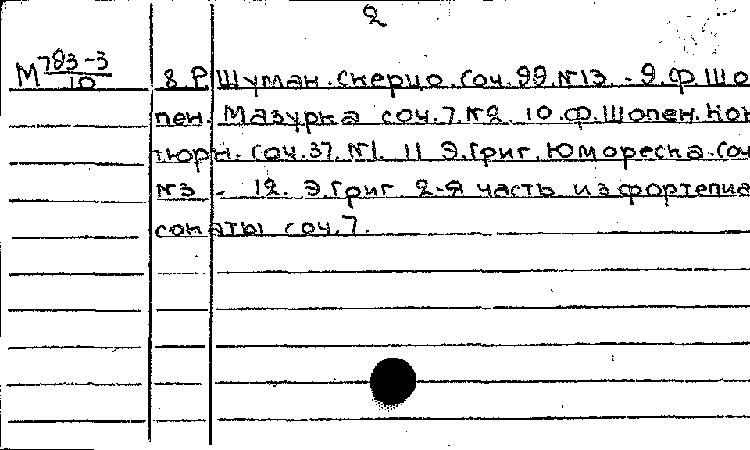 2
М 783-3
10
8. Р. Шуман. Скерцо. Соч. 99. №13. - 9. Ф. Шо
пен. Мазурка соч. 7. №2. 10. Ф. Шопен. Нок
тюрн. Соч. 37. №1. 11 Э. Григ. Юмореска. Соч
№3 - 12. Э. Григ. 2-я часть из фортепиа
сонаты соч. 7.